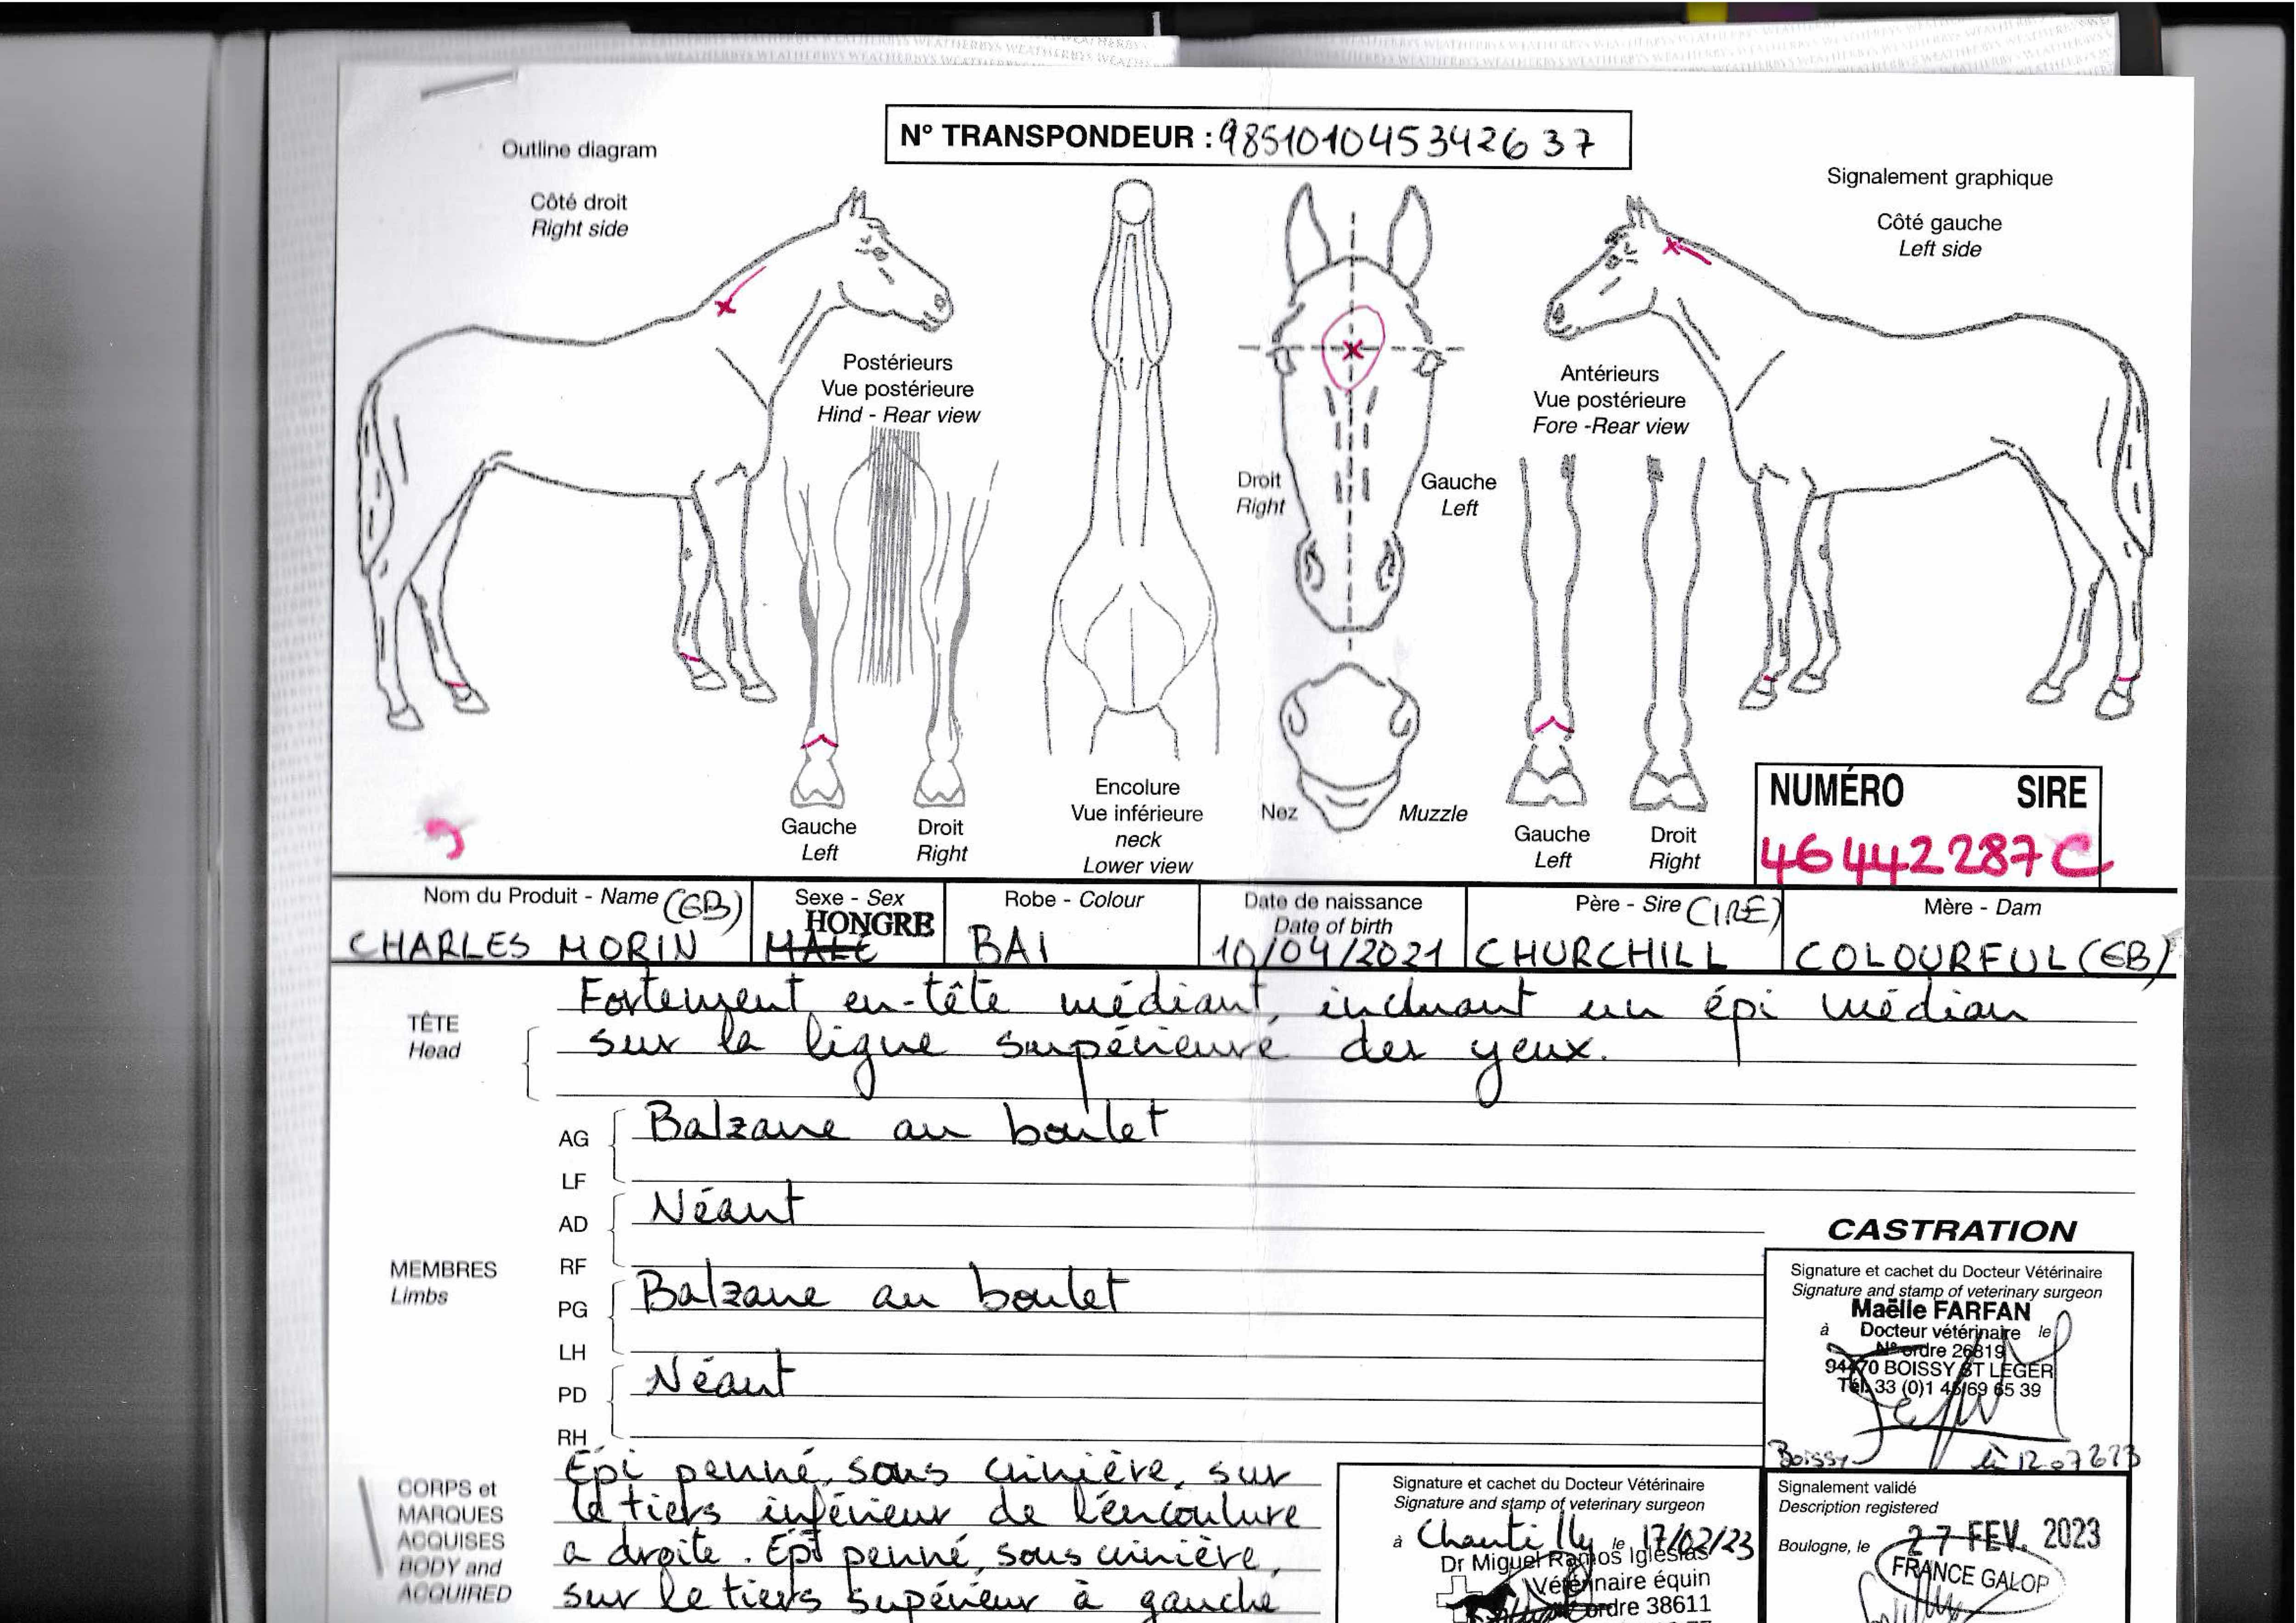 WEATHERBYS WEATHERBYS WEATHERBYS WEATHERBYS
N° TRANSPONDEUR : 985101045342637
Outline diagram
Côté droit
Right side
Signalement graphique
Côté gauche
Left side
Postérieurs
Vue postérieure
Hind - Rear view
Antérieurs
Vue postérieure
Fore -Rear view
Droit
Right
Gauche
Left
Gauche
Left
Droit
Right
Encolure
Vue inférieure
neck
Lower view
Nez
Muzzle
Gauche
Left
Droit
Right
NUMÉRO SIRE
46442287C
Nom du Produit - Name (GB)
CHARLES MORIN
Sexe - Sex
HONGRE
MALE
Robe - Colour
BAI
Date de naissance
Date of birth
10/04/2021
Père - Sire (IRE)
CHURCHILL
Mère - Dam
COLOURFUL (GB)
TÊTE
Head
Fortement en-tête médiant, incluant un épi médian
sur la ligne supérieure des yeux.
MEMBRES
Limbs
AG
LF
Balzane au boulet
AD
RF
Néant
PG
LH
Balzane au boulet
PD
RH
Néant
CASTRATION
Signature et cachet du Docteur Vétérinaire
Signature and stamp of veterinary surgeon
Maëlle FARFAN
à Docteur vétérinaire le
N° ordre 26819
94470 BOISSY ST LEGER
Tél. 33 (0)1 45 69 65 39
Boissy
CORPS et
MARQUES
ACQUISES
BODY and
ACQUIRED
Epi penné, sous crinière, sur
le tiers inférieur de l'encoulure
a droite. Epi penné, sous crinière,
sur le tiers supérieur à gauche
Signature et cachet du Docteur Vétérinaire
Signature and stamp of veterinary surgeon
à Chantilly le 17/02/23
Dr Miguel Ramos Iglesias
Vétérinaire équin
ordre 38611
Signalement validé
Description registered
Boulogne, le 27 FEV. 2023
FRANCE GALOP